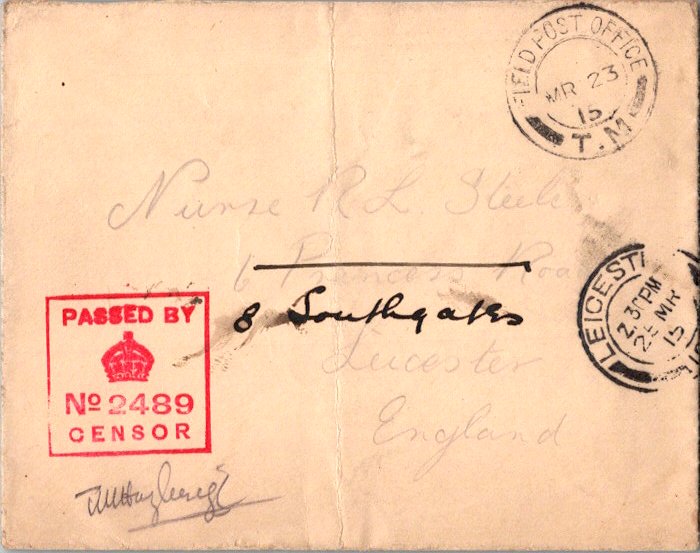 FIELD POST OFFICE
MR 23
15
T.M
Nurse R. L. Steele
6 Princess Road
8 Southgates
Leicester
England
LEICESTER
2 30PM
MR
15
PASSED BY
No 2489
CENSOR